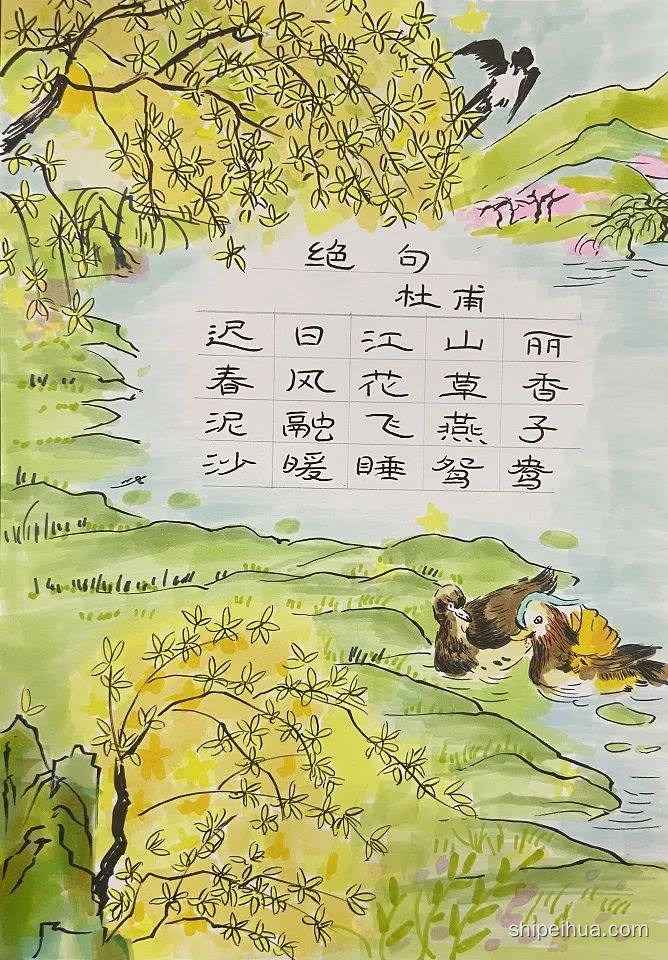 绝句
杜甫
迟日江山丽
春风花草香
泥融飞燕子
沙暖睡鸳鸯
shipeihua.com